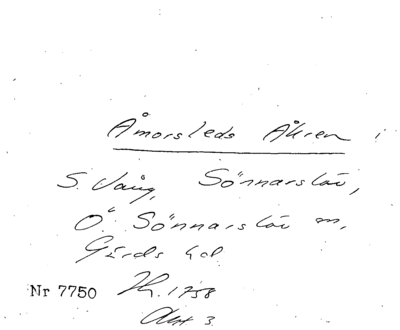 Åmorsleds Åkren i
S. Vång, Sönnarslöv,
Ö. Sönnarslöv m,
Gärds hd
Nr 7750 Jh. 1758
Akt 3.